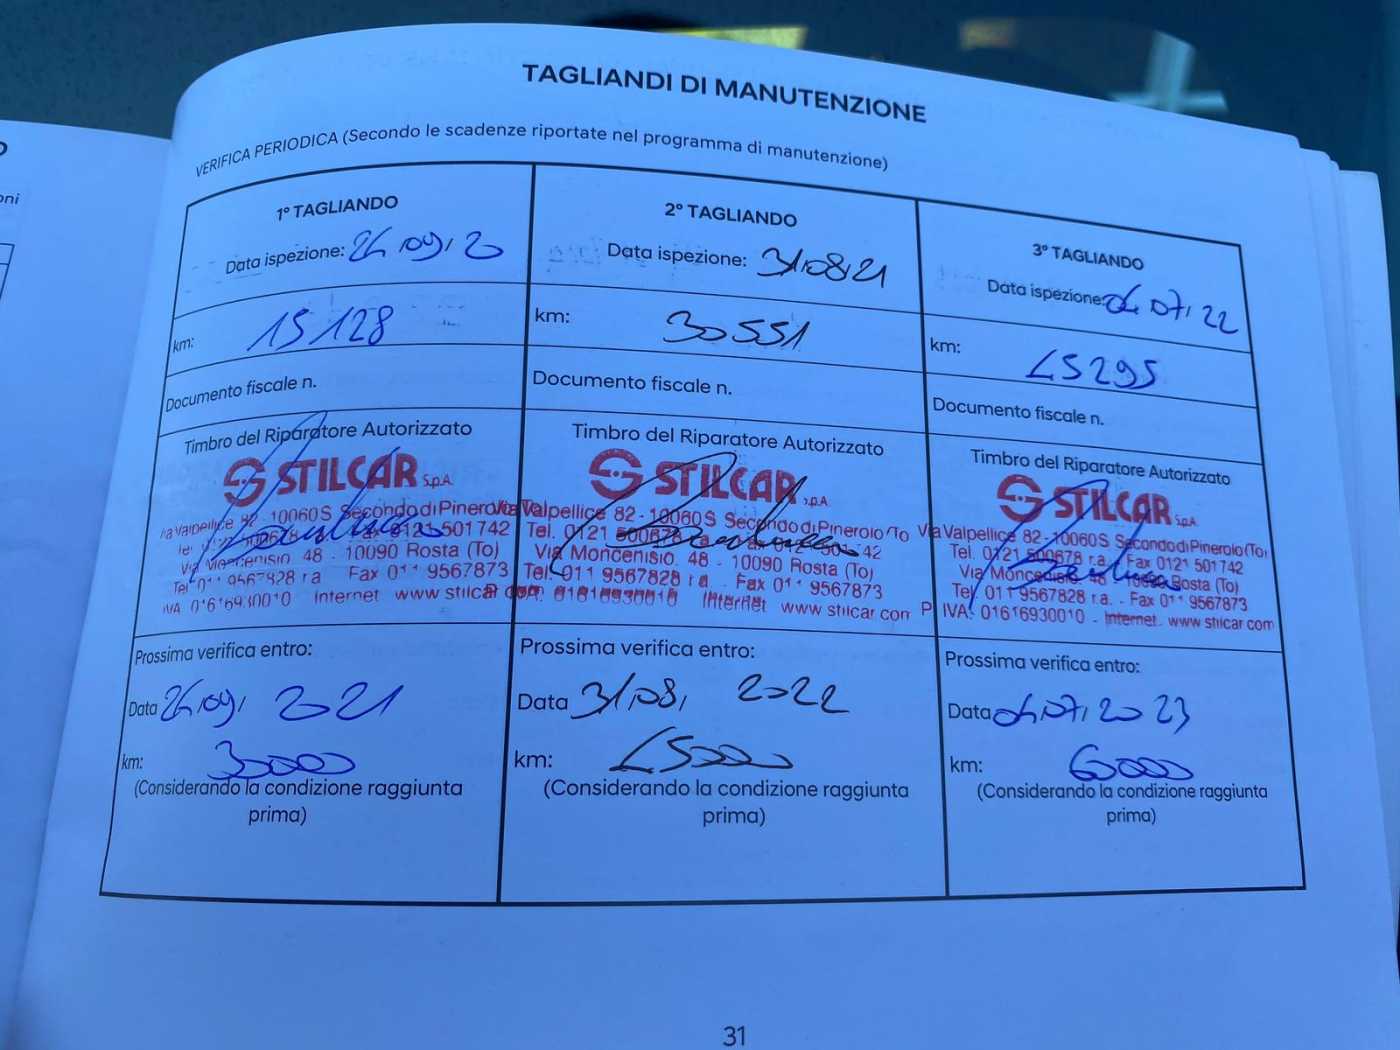 oni
TAGLIANDI DI MANUTENZIONE
VERIFICA PERIODICA (Secondo le scadenze riportate nel programma di manutenzione)
1° TAGLIANDO
Data ispezione: 24,09, 20
km: 15128
Documento fiscale n.
Timbro del Riparatore Autorizzato
STILCAR S.p.A.
Via Valpellice 82 - 10060 S Secondo di Pinerolo
Fax 0121 501742
Via Moncenisio, 48 - 10090 Rosta (To)
Tel 011 9567828 r.a Fax 011 9567873
IVA 01616930010 Internet www stilcar com
Prossima verifica entro:
Data 24,09, 2021
km: 30000
(Considerando la condizione raggiunta
prima)
2° TAGLIANDO
Data ispezione: 31,08,21
km: 30551
Documento fiscale n.
Timbro del Riparatore Autorizzato
STILCAR S.p.A
Via Valpellice 82 - 10060 S Secondo di Pinerolo/To
Tel. 0121 500678 r.a
Via Moncenisio. 48 - 10090 Rosta (To)
Tel. 011 9567828 r a - Fax 011 9567873
IVA. 01616930010 Internet www stilcar com
Prossima verifica entro:
Data 31,08, 2022
km: 45000
(Considerando la condizione raggiunta
prima)
3° TAGLIANDO
Data ispezione: 04,07, 22
km: 45295
Documento fiscale n.
Timbro del Riparatore Autorizzato
STILCAR S.p.A.
Via Valpellice 82 - 10060 S Secondo di Pinerolo (To)
Tel. 0121 500678 r.a. - Fax 0121 501742
Via Moncenisio. 48 - 10090 Rosta (To)
Tel 011 9567828 r.a. - Fax 011 9567873
P IVA. 01616930010 - Internet. www stilcar com
Prossima verifica entro:
Data 04,07,2023
km: 60000
(Considerando la condizione raggiunta
prima)
31